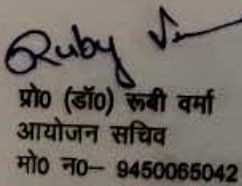 Ruby
प्रो0 (डॉ0) रूबी वर्मा
आयोजन सचिव
मो0 न0– 9450065042